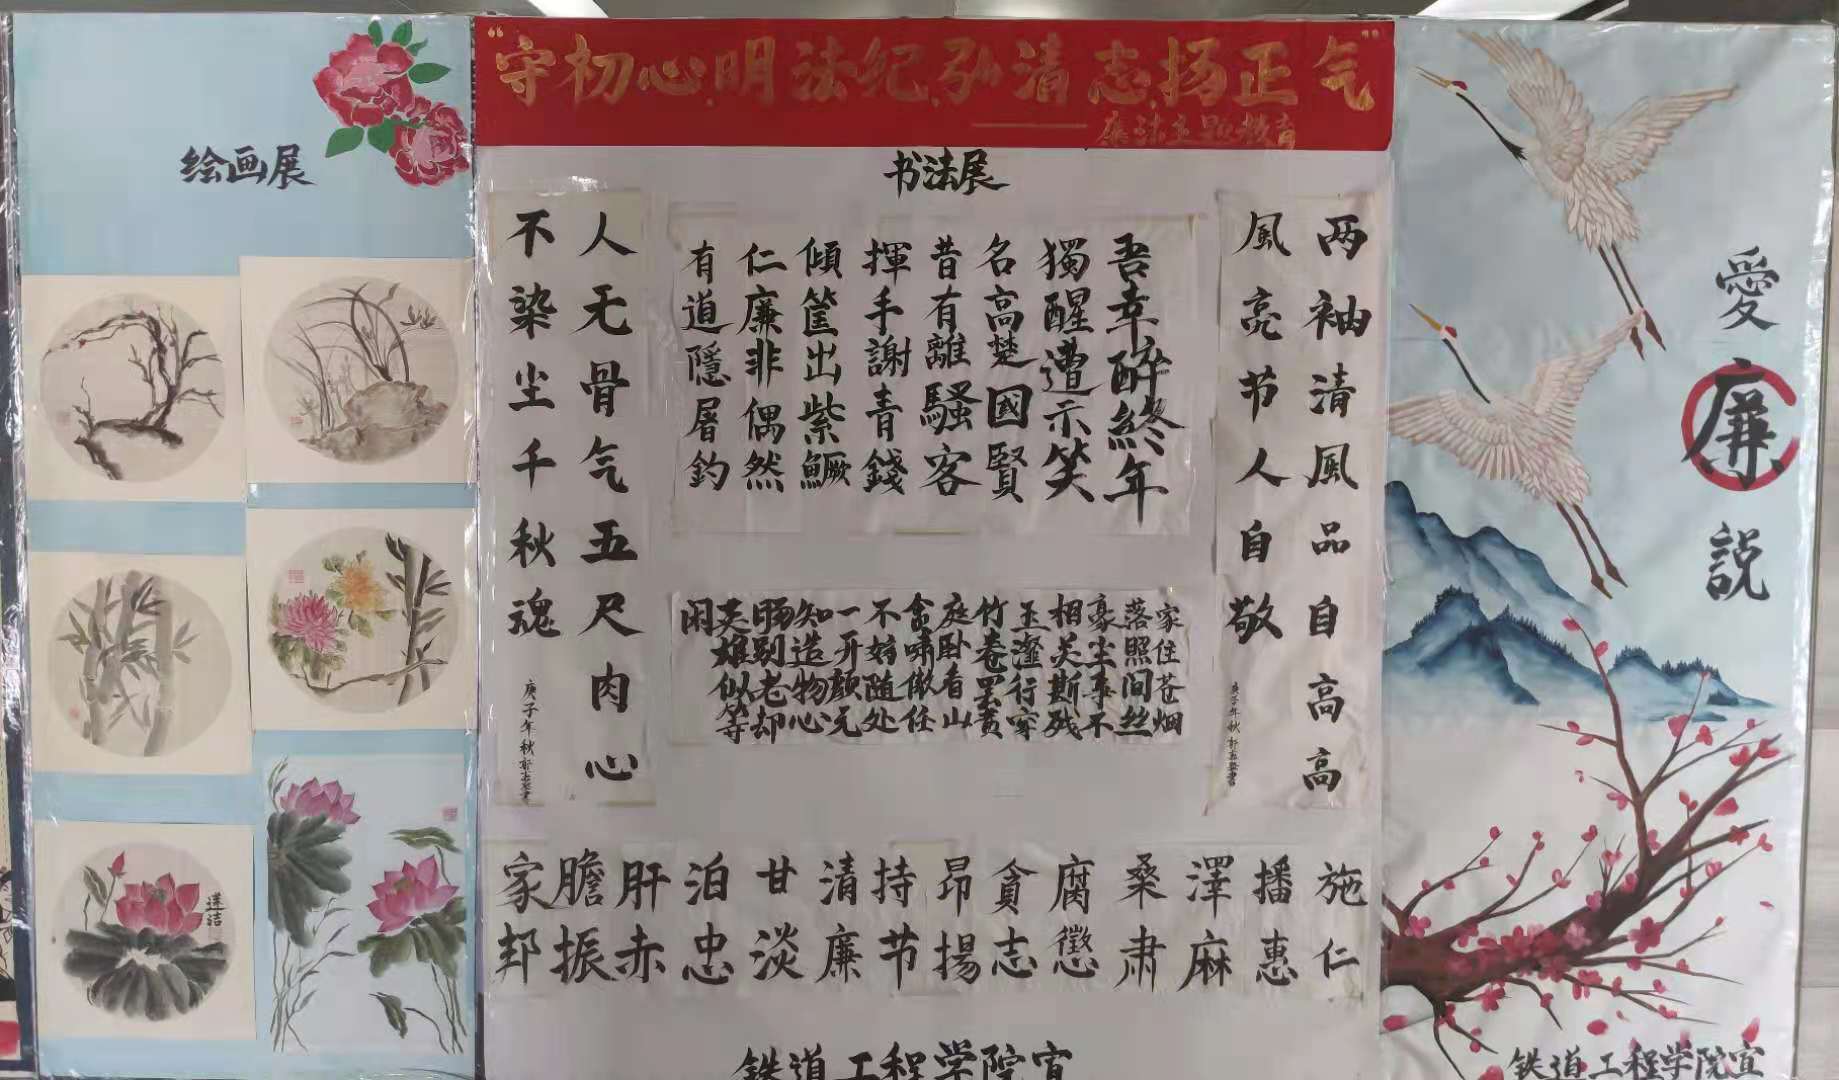 “守初心、明法纪、弘清志、扬正气”
——廉洁主题教育
绘画展
莲洁
书法展
两袖清风品自高高
風亮节人自敬
吾幸醉終年
獨醒遭示笑
名高楚國賢
昔有離騷客
揮手謝青錢
傾筐出紫鱖
仁廉非偶然
有道隱屠釣
人无骨气五尺肉心
不染尘千秋魂
庚子年秋
家住苍烟
落照间丝
豪尘事不
相关斯残
玉瀣行穿
竹卷罢黄
庭卧看山
贪啸傲任
不妨随处
一开颜元
知造物心
肠别老却
英雄似等
闲
施仁
播惠
澤麻
桑肃
腐懲
貪志
昂揚
持节
清廉
甘淡
泊忠
肝赤
膽振
家邦
铁道工程学院宣
愛廉説
铁道工程学院宣